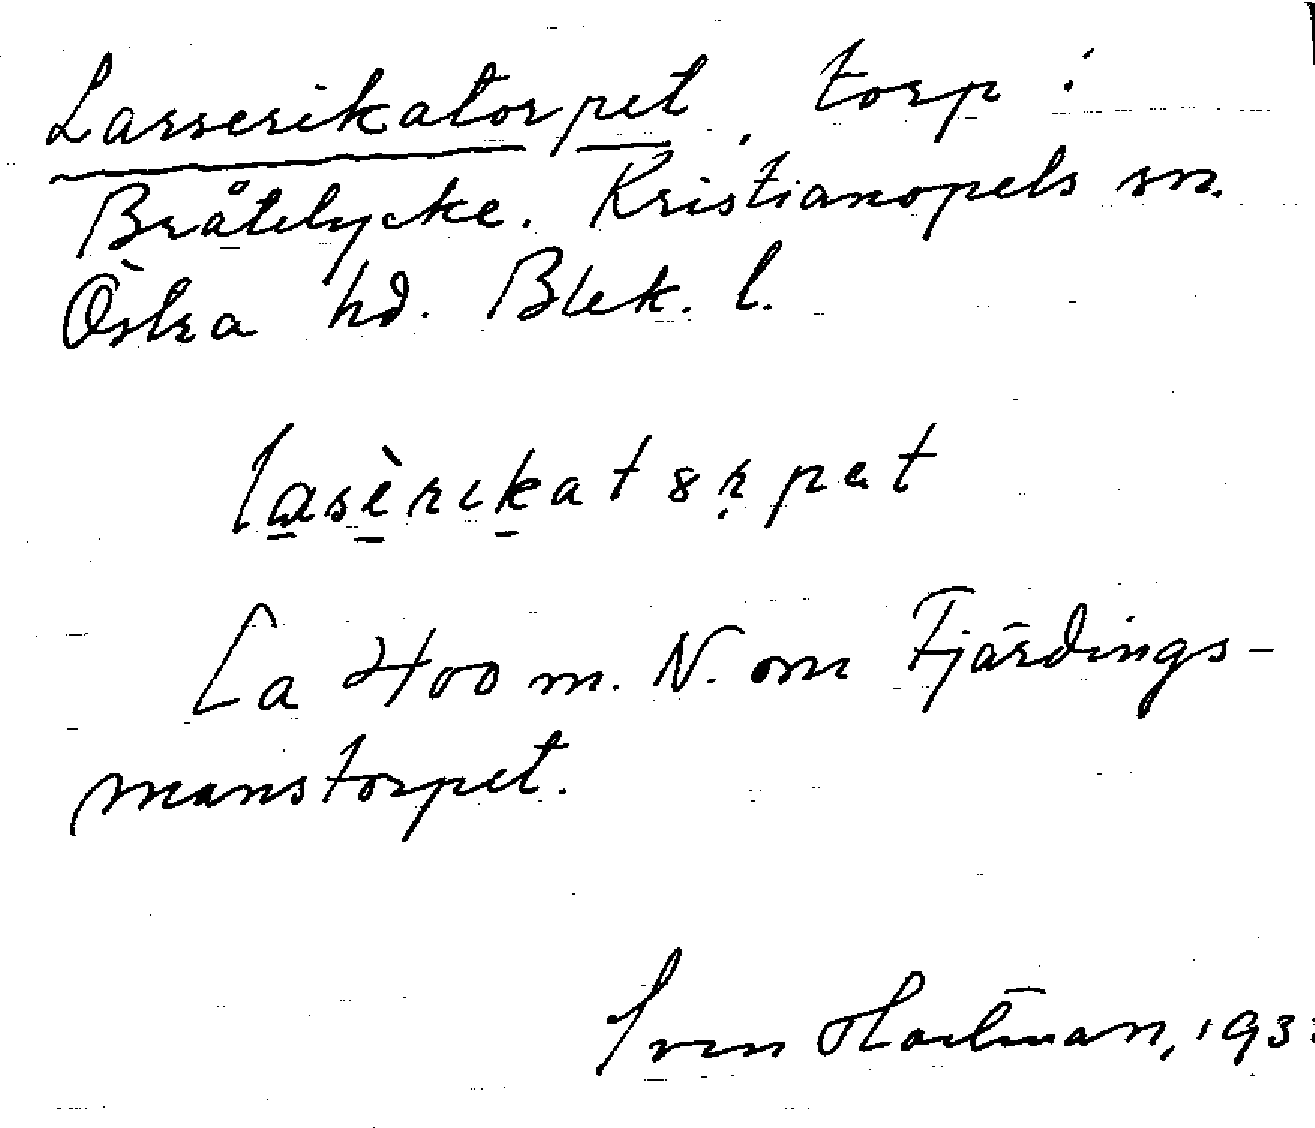 Lasserikatorpet, torp i
Bråtelycke. Kristianopels sn.
Östra hd. Blek. l.
lasèrikat8rpat
Ca 400 m. N. om Fjärdings-
manstorpet.
Sven Hartman, 193